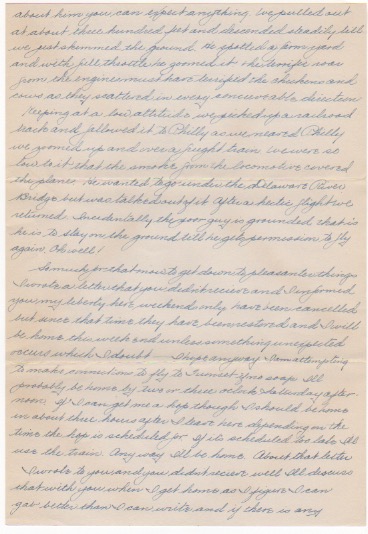 about him you can expect anything. We pulled out
at about three hundred feet and descended steadily till
we just skimmed the ground. He spotted a farm yard
and with full throttle he zoomed it the terrific roar
from the engines must have terrified the chickens and
cows as they scattered in every conceivable direction
Keeping at a low altitude we picked up a railroad
track and followed it to Philly as we neared Philly
we zoomed up and over a freight train we were so
close to it that the smoke from the locomotive covered
the plane. He wanted to go under the Delaware River
Bridge but was talked out of it. After a hectic flight we
returned. Incidentally the poor guy is grounded, that is
he is to stay on the ground till he gets permission to fly
again. Oh well!
So much for that now to get down to pleasanter things
I wrote a letter that you didn't receive and I informed
you my liberty here weekend only have been cancelled
but since that time they have been restored and I will
be home this weekend unless something unexpected
occurs which I doubt. I hope anyway. I am attempting
to make connections to fly to If no soap I'll
probably be home by two or three o'clock Saturday after-
noon. If I can get me a hop though I should be home
in about three hours after I leave here depending on the
time the hop is scheduled for. If its scheduled too late I'll
use the train. Any way I'll be home. About that letter
I wrote to you and you didn't receive well I'll discuss
that with you when I get home as I figure I can
gab better than I can write and if there is any